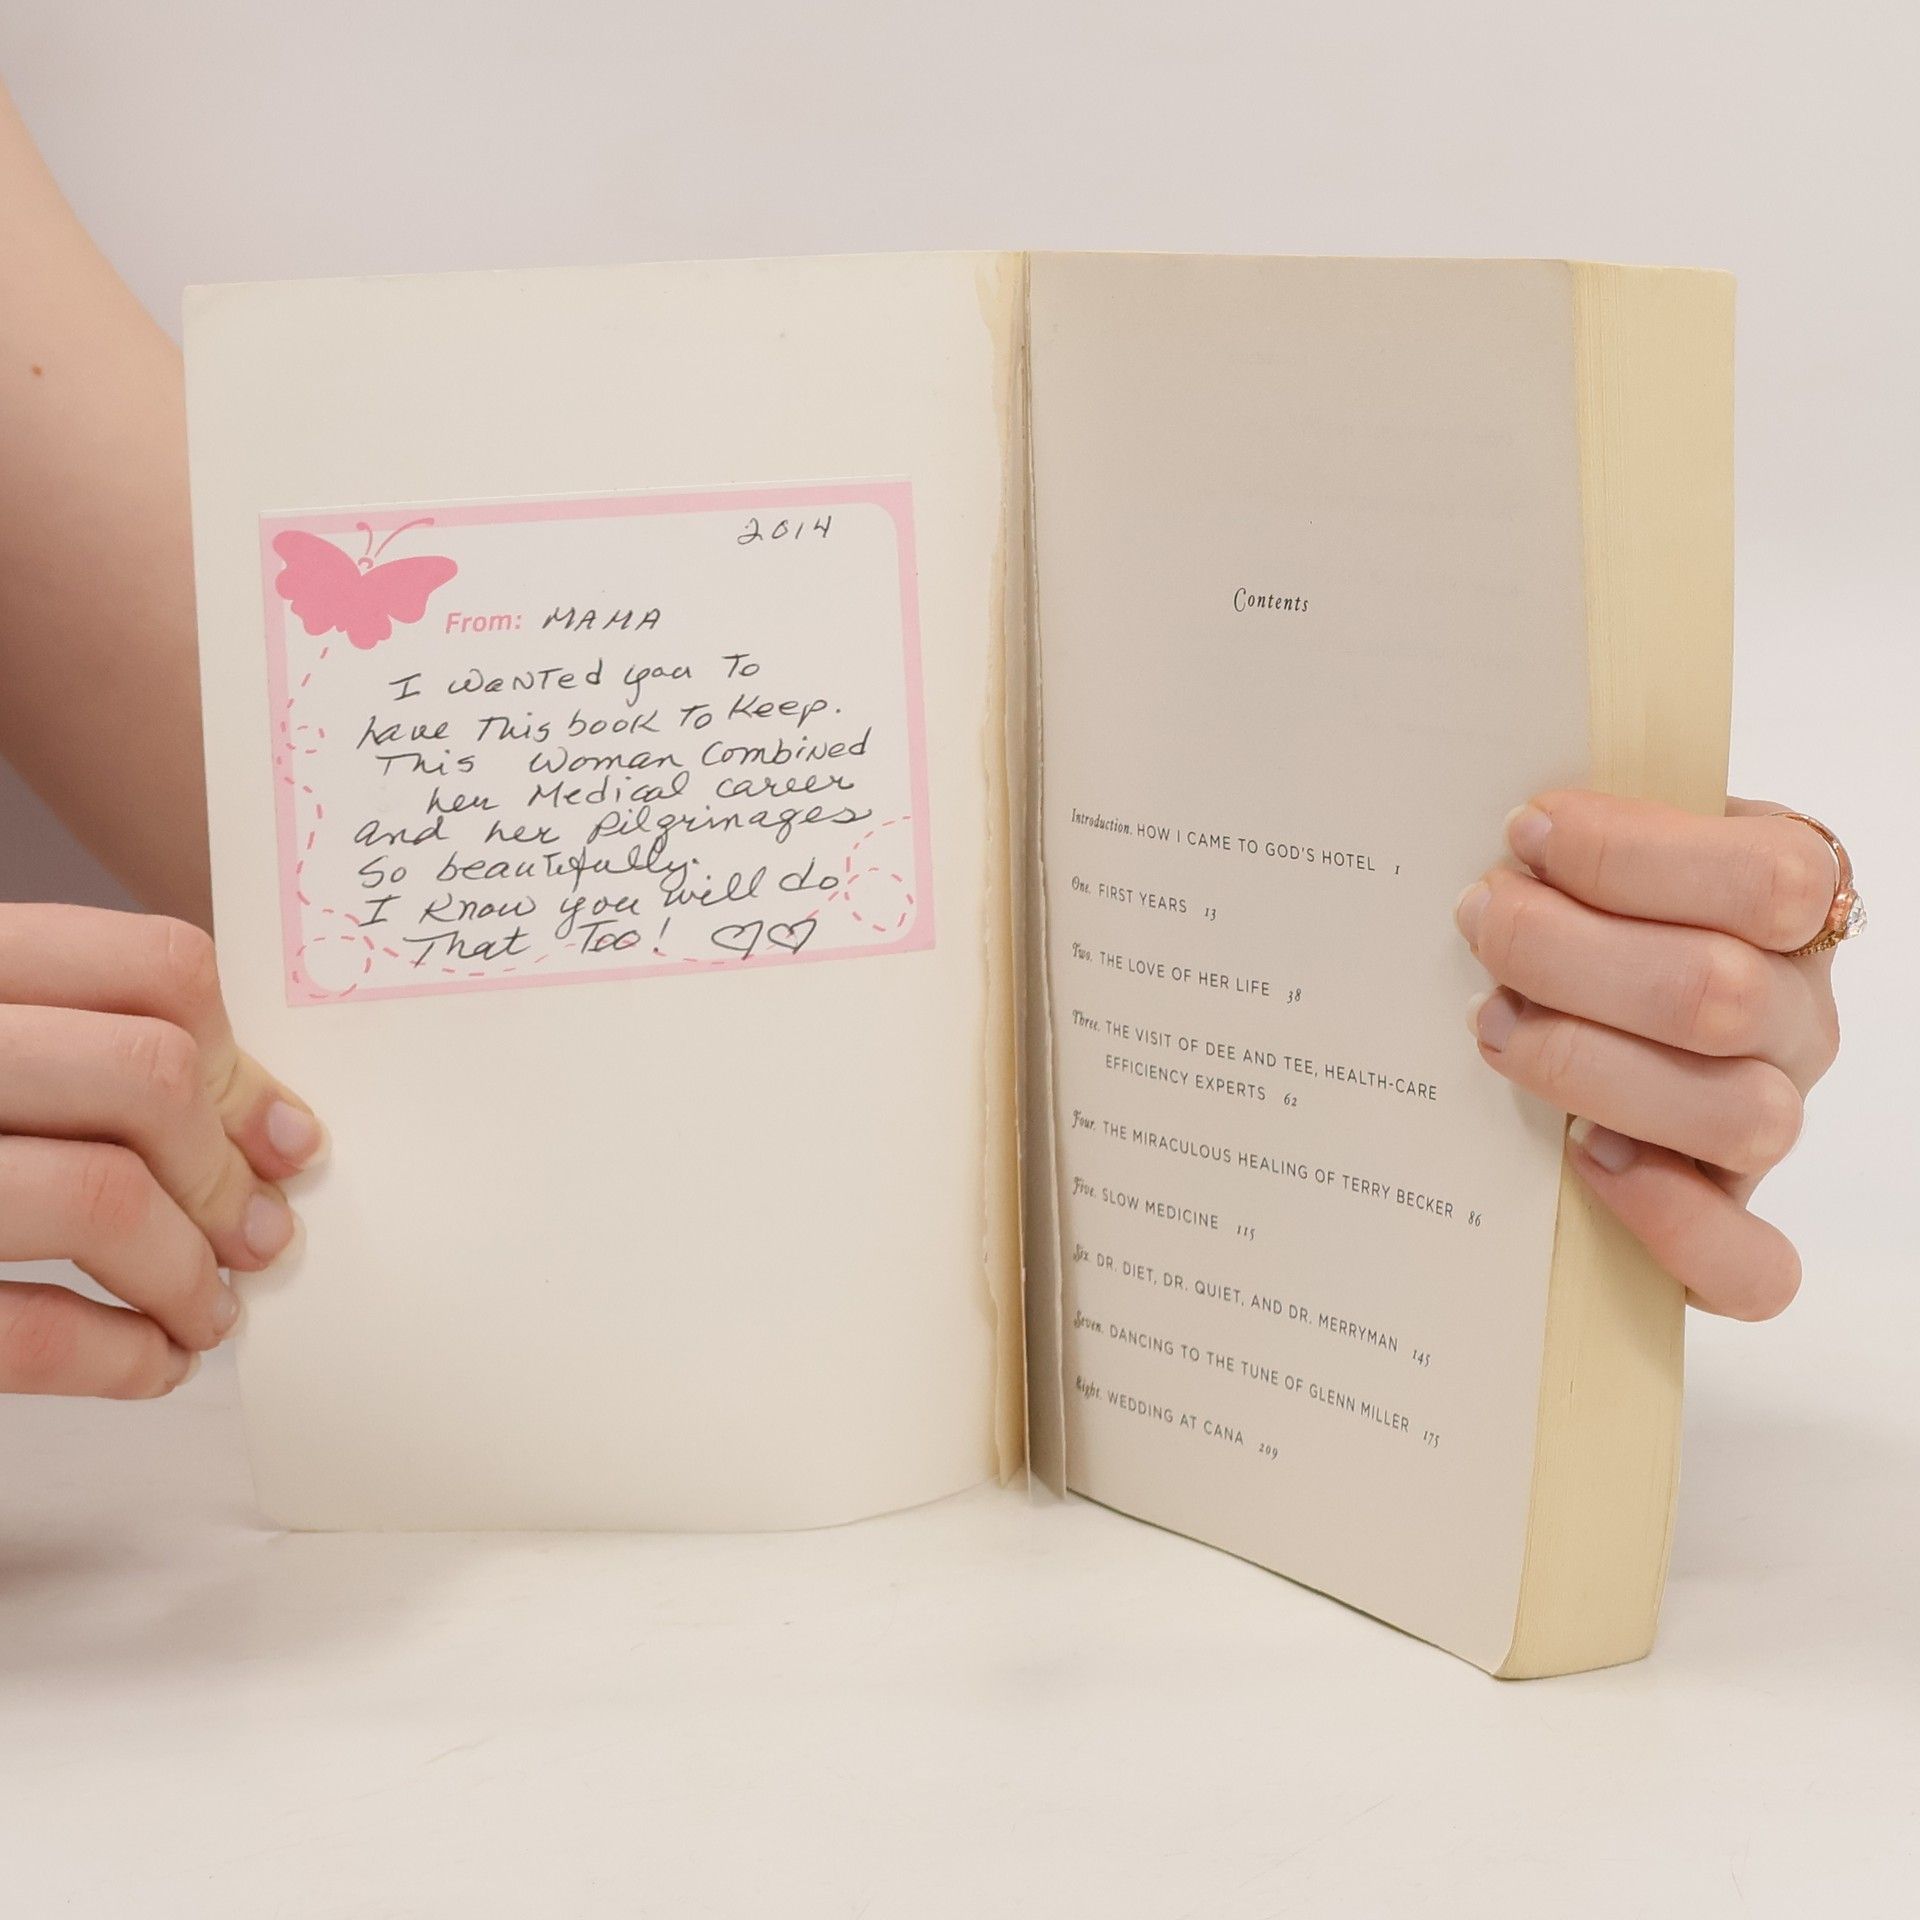 2014
From: MAMA
I wanted you to
have this book to keep.
This woman combined
her medical career
and her pilgrimages
so beautifully.
I know you will do
that too! ♡♡
Contents
Introduction. HOW I CAME TO GOD'S HOTEL 1
One. FIRST YEARS 13
Two. THE LOVE OF HER LIFE 38
Three. THE VISIT OF DEE AND TEE, HEALTH-CARE
EFFICIENCY EXPERTS 62
Four. THE MIRACULOUS HEALING OF TERRY BECKER 86
Five. SLOW MEDICINE 115
Six. DR. DIET, DR. QUIET, AND DR. MERRYMAN 145
Seven. DANCING TO THE TUNE OF GLENN MILLER 175
Eight. WEDDING AT CANA 209